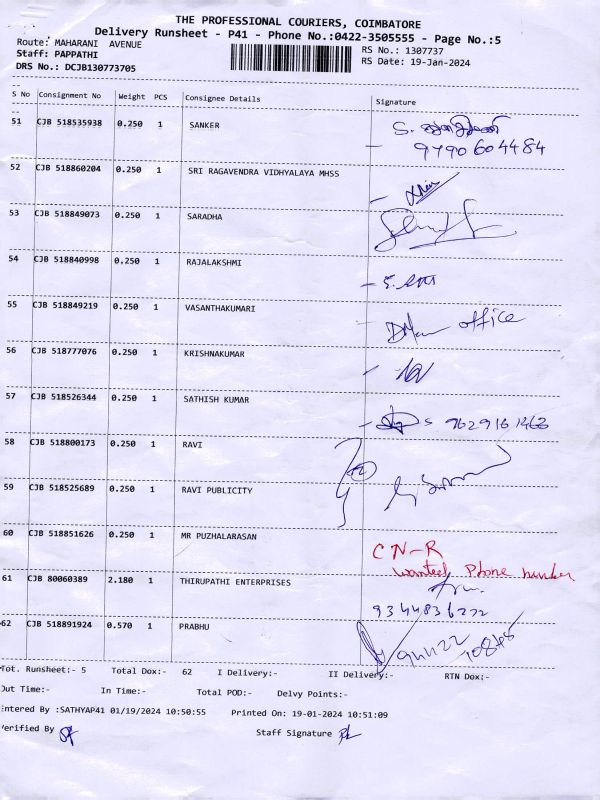 THE PROFESSIONAL COURIERS, COIMBATORE
Delivery Runsheet - P41 - Phone No.:0422-3505555 - Page No.:5
Route: MAHARANI AVENUE RS No.: 1307737
Staff: PAPPATHI RS Date: 19-Jan-2024
DRS No.: DCJB130773705
S No Consignment No Weight PCS Consignee Details Signature
51 CJB 518535938 0.250 1 SANKER
9790604484
52 CJB 518860204 0.250 1 SRI RAGAVENDRA VIDHYALAYA MHSS
53 CJB 518849073 0.250 1 SARADHA
54 CJB 518840998 0.250 1 RAJALAKSHMI
55 CJB 518849219 0.250 1 VASANTHAKUMARI
office
56 CJB 518777076 0.250 1 KRISHNAKUMAR
57 CJB 518526344 0.250 1 SATHISH KUMAR
58 CJB 518800173 0.250 1 RAVI
59 CJB 518525689 0.250 1 RAVI PUBLICITY
60 CJB 518851626 0.250 1 MR PUZHALARASAN
CN-R
wanted Phone number
61 CJB 80060389 2.180 1 THIRUPATHI ENTERPRISES
9344836272
62 CJB 518891924 0.570 1 PRABHU
Tot. Runsheet:- 5 Total Dox:- 62 I Delivery:- II Delivery:- RTN Dox:-
Out Time:- In Time:- Total POD:- Delvy Points:-
Entered By :SATHYAP41 01/19/2024 10:50:55 Printed On: 19-01-2024 10:51:09
Verified By Staff Signature